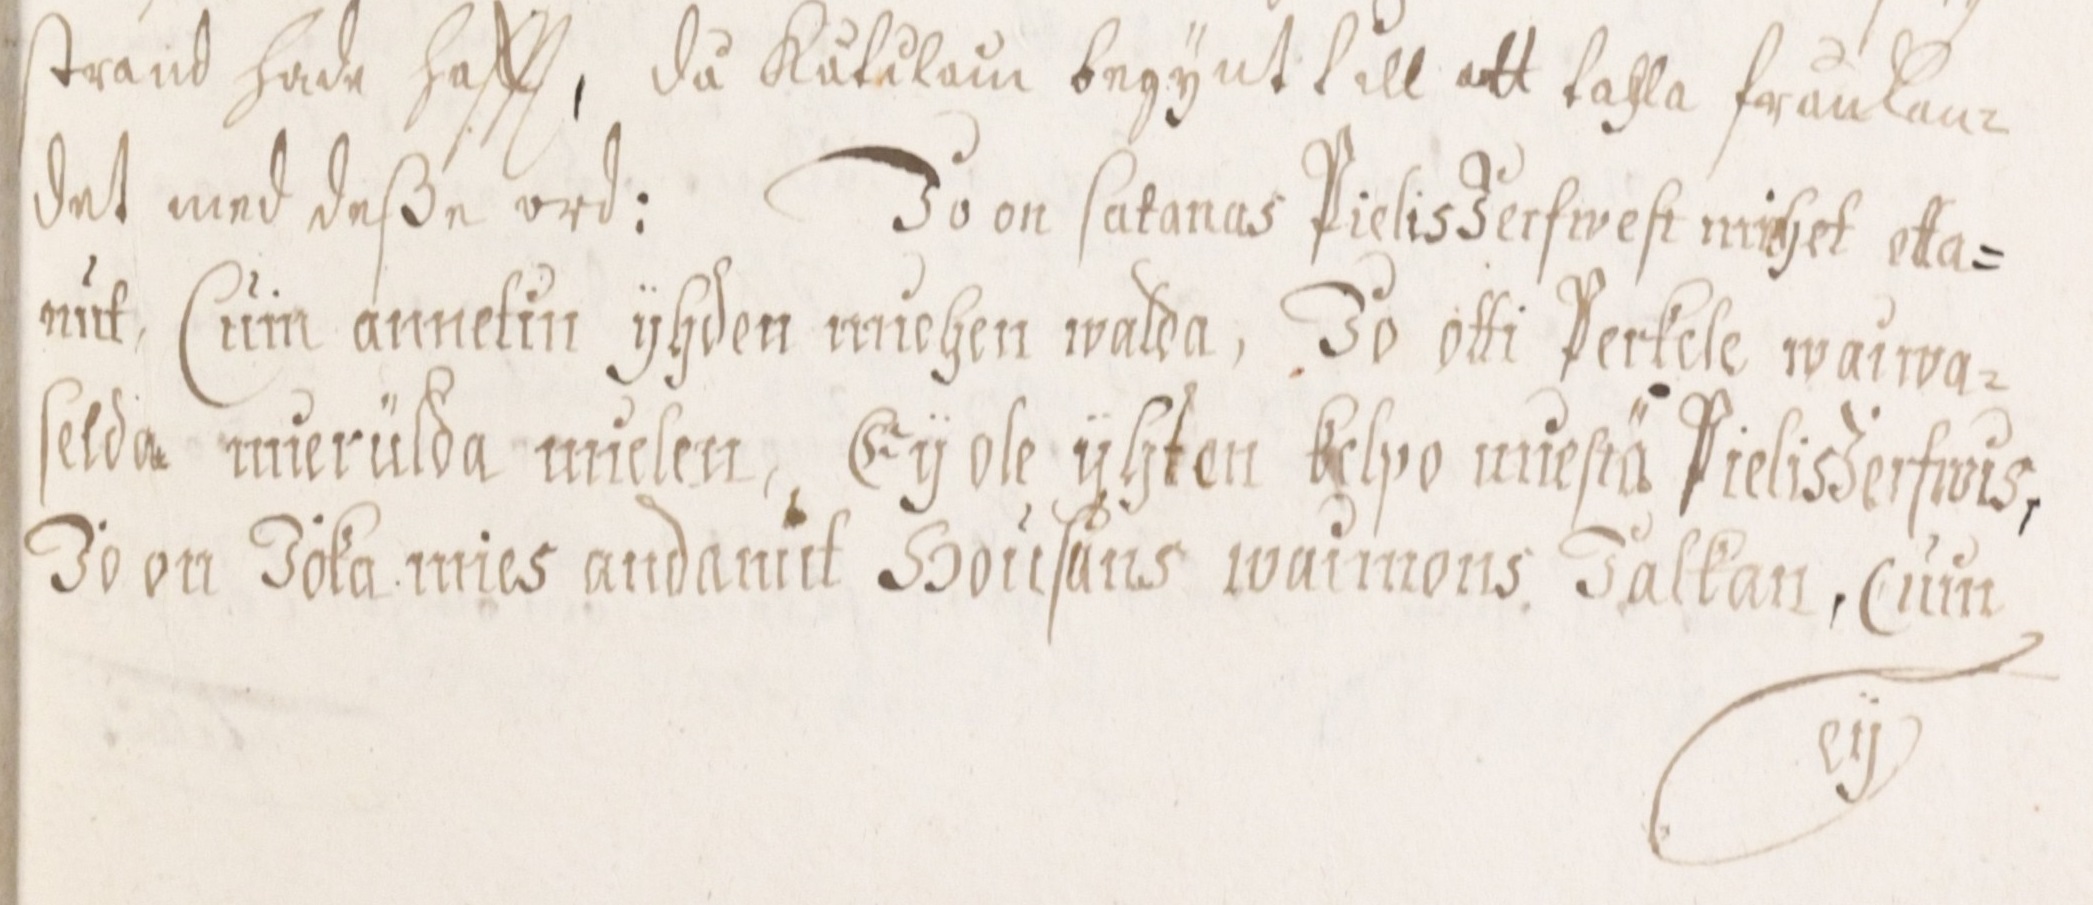 strand hade haff, då Kukulain begÿnt till att tahla främban=
det med deße ord: Jo on satanas PielisJerfwest mihet otta=
nut, Cuin annetin ÿhden miehen walda, Jo otti Perkele waiwa=
selda mierülda mielen, Eÿ ole ÿhten kelpo miestä PielisJerfwis,
Jo on Joka mies andanut Housüns waimons Jalkan, Cuin
eij